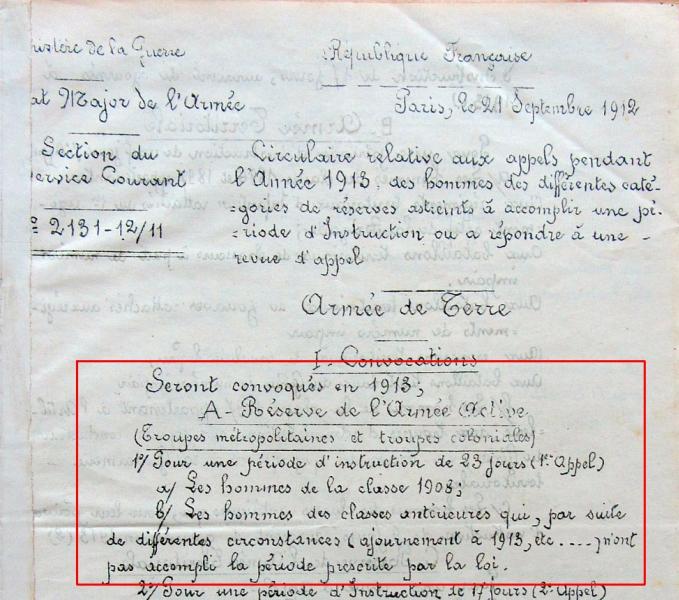 nistère de la Guerre
République Française
at Major de l'Armée
Paris, le 21 Septembre 1912
Section du
ervice Courant
° 2131-12/11
Circulaire relative aux appels pendant
l'Année 1913, des hommes des différentes caté-
=gories de réserves astreints à accomplir une pé-
=riode d'Instruction ou a répondre à une -
revue d'appel
Armée de Terre
I - Convocations
Seront convoqués en 1913;
A - Réserve de l'Armée Active
(Troupes métropolitaines et troupes coloniales)
1°/ Pour une période d'instruction de 23 jours (1er Appel)
a/ Les hommes de la classe 1908;
b/ Les hommes des classes antérieures qui, par suite
de différentes circonstances (ajournement à 1913, etc ....) n'ont
pas accompli la période prescrite par la loi.
2°/ Pour une période d'Instruction de 17 jours (2e Appel)